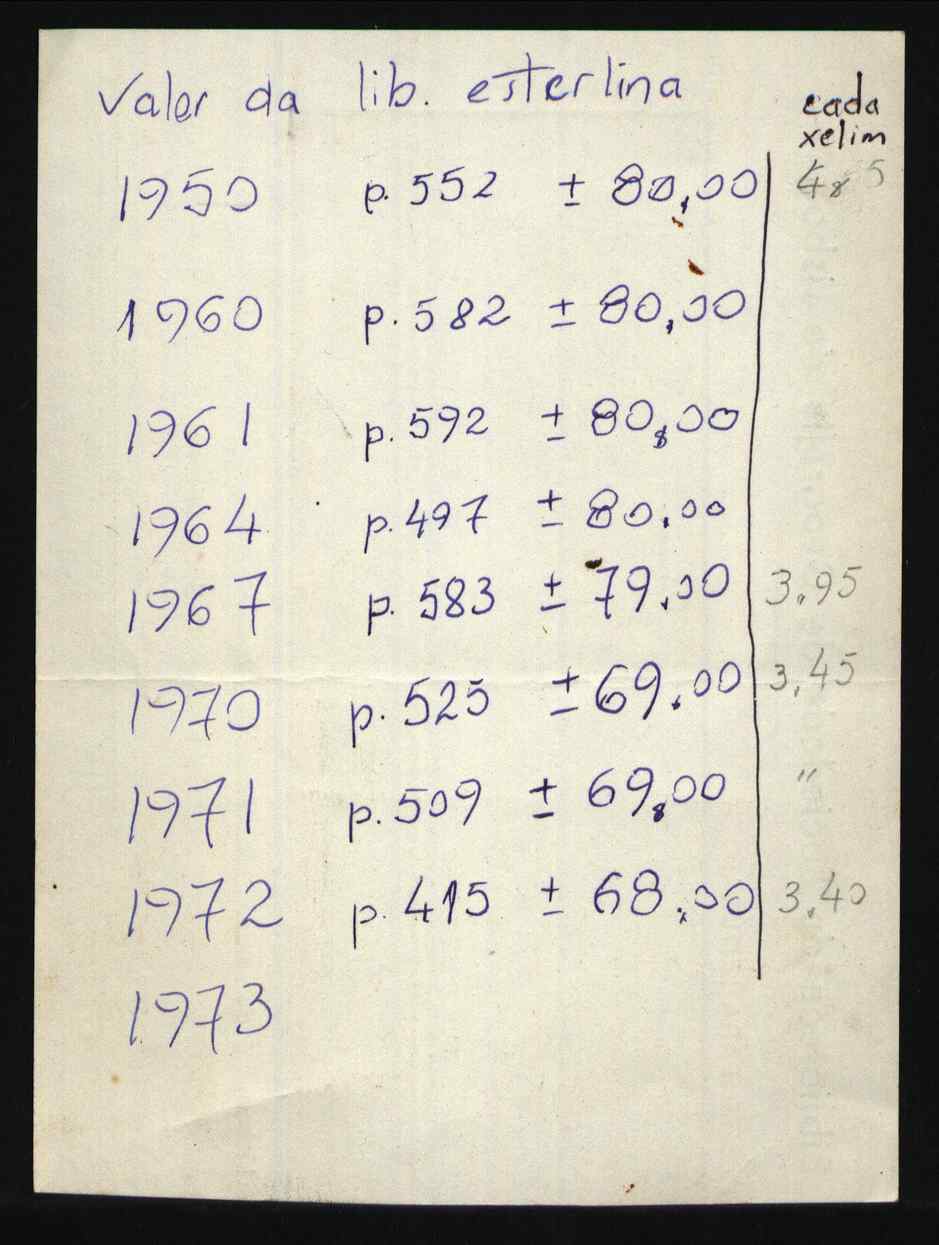 Valor da lib. esterlina
cada
xelim
1950 p. 552 ± 80,00
1960 p. 582 ± 80,00
1961 p. 592 ± 80,00
1964 p. 497 ± 80,00
1967 p. 583 ± 79,00 3,95
1970 p. 525 ± 69,00 3,45
1971 p. 509 ± 69,00 "
1972 p. 415 ± 68,00 3,40
1973